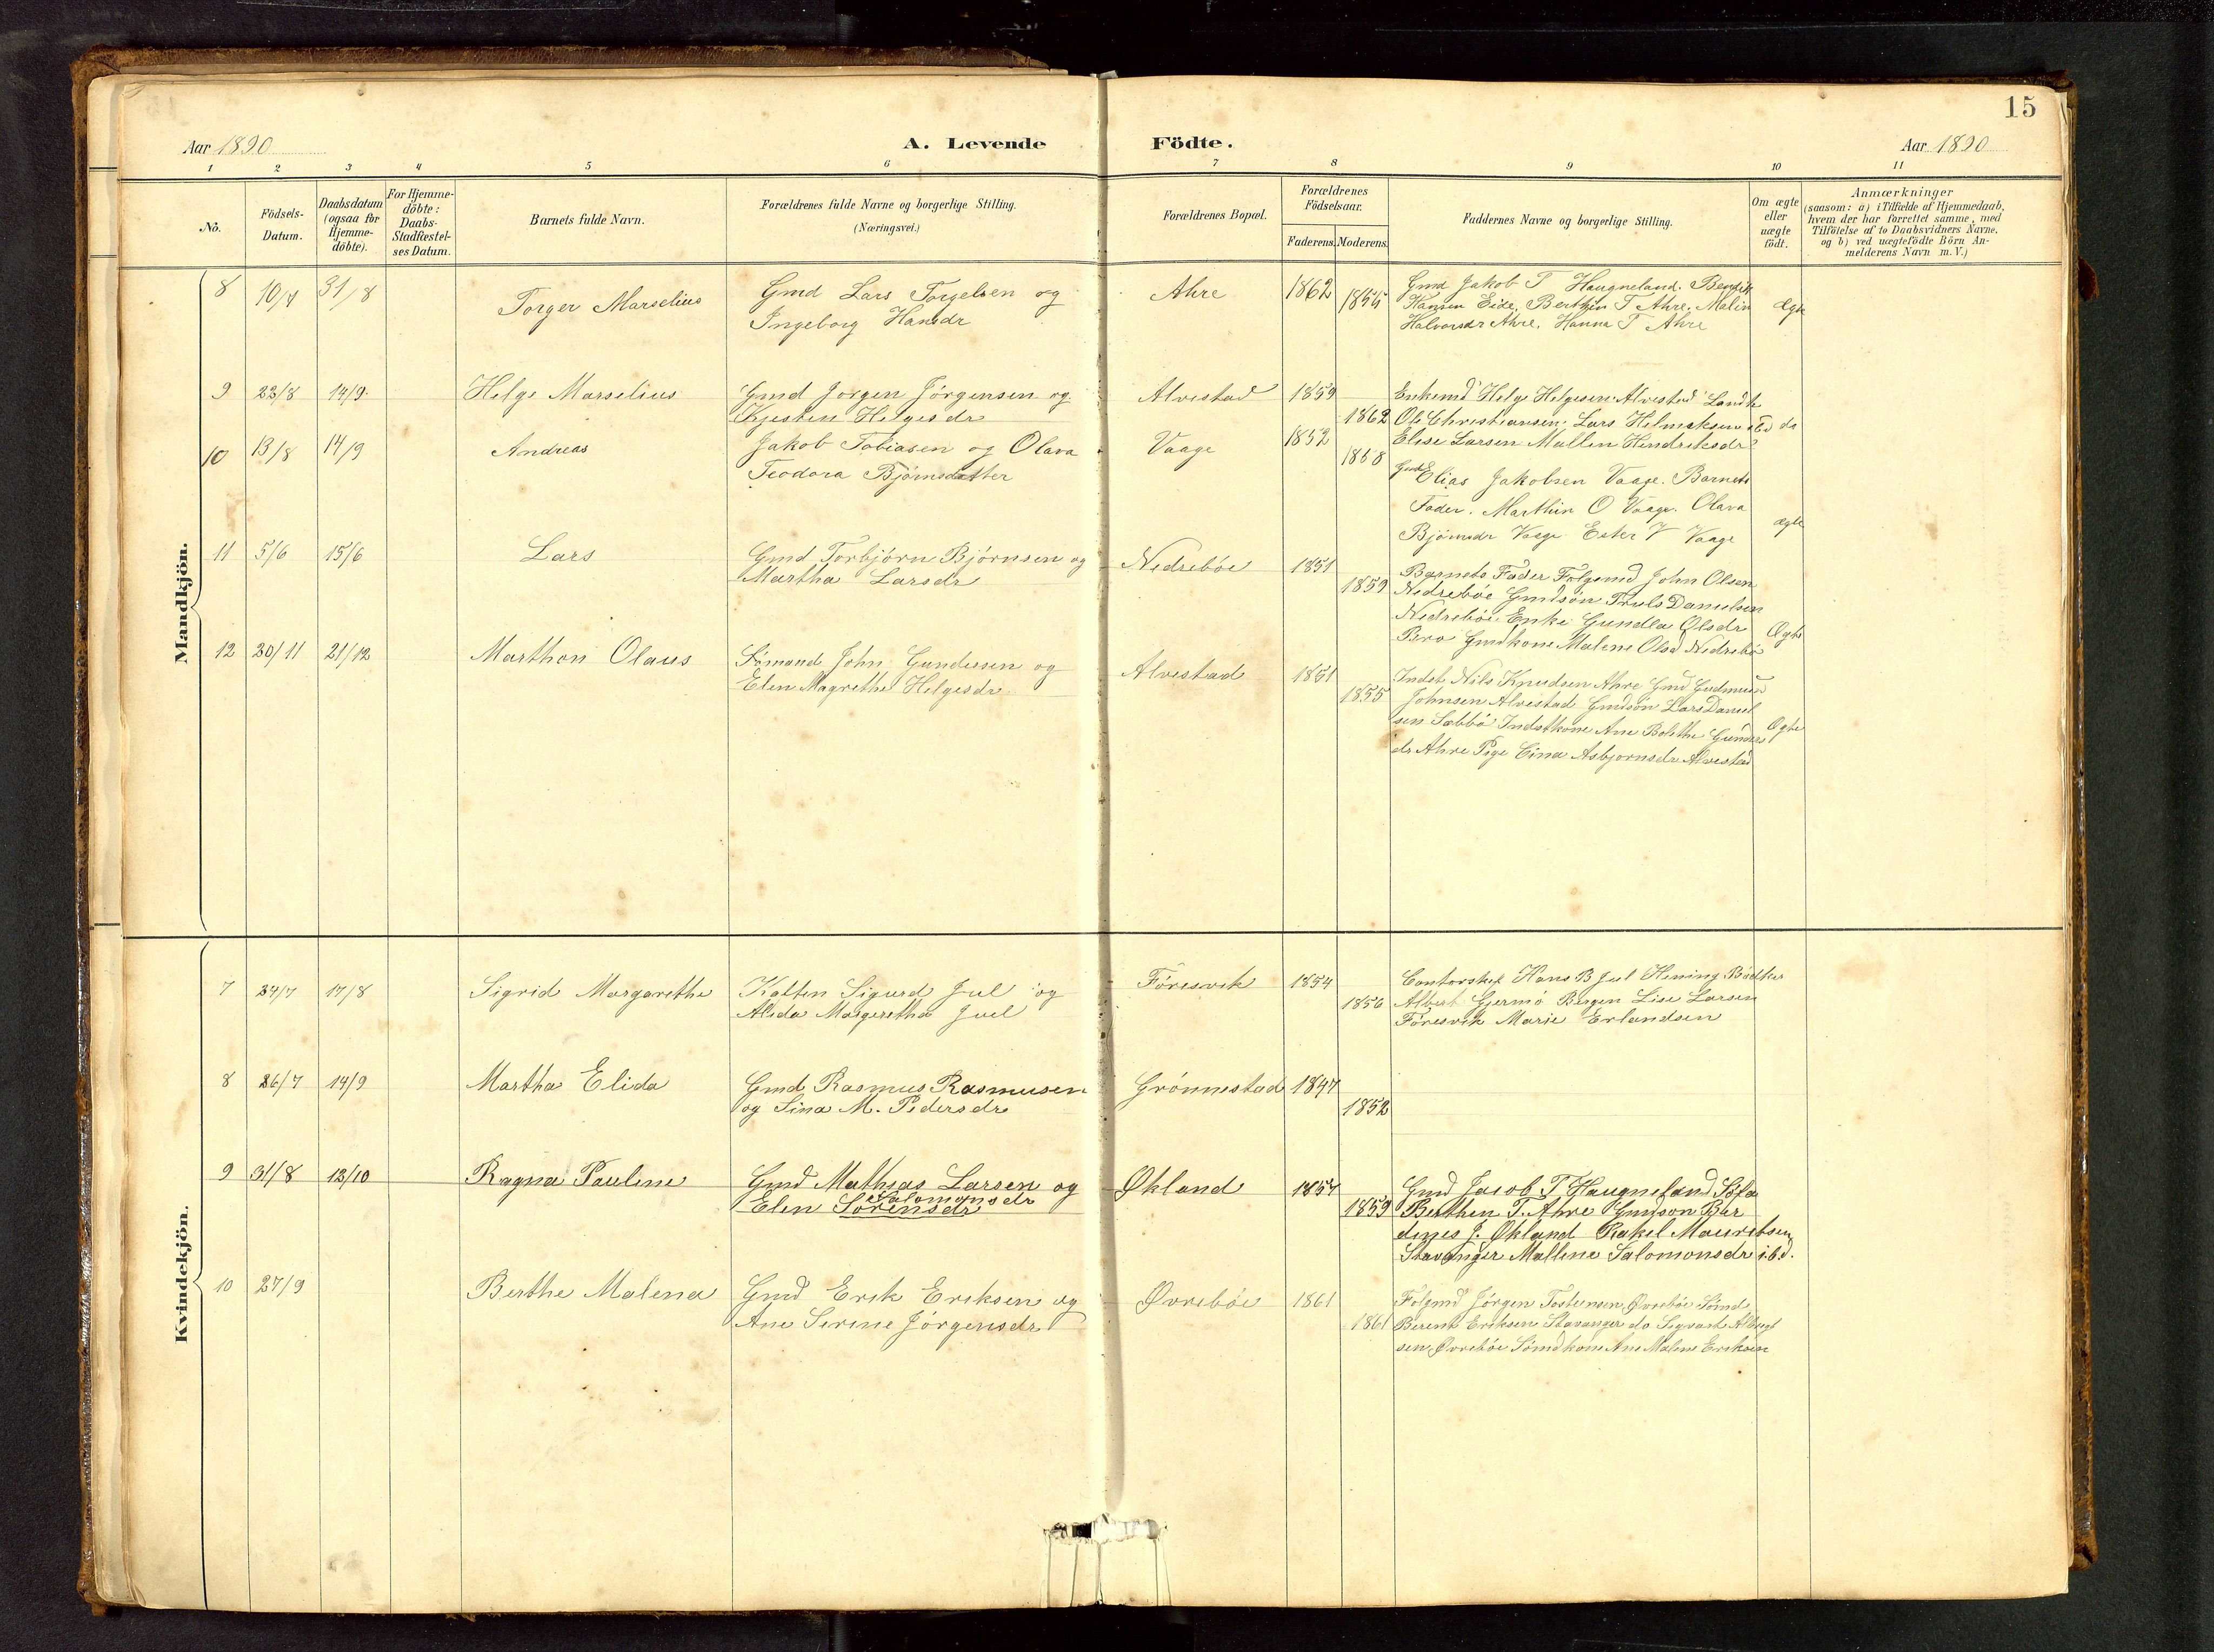 15
Aar 1890
A. Levende Födte.
Aar 1890
1 2 3 4 5 6 7 8 9 10 11
No.
Födsels-Datum.
Daabsdatum (ogsaa for Hjemme-döbte).
For Hjemme-döbte: Daabs-Stadfæstel-ses Datum.
Barnets fulde Navn.
Forældrenes fulde Navne og borgerlige Stilling.
(Næringsvei.)
Forældrenes Bopæl.
Forældrenes Födselsaar.
Faderens. Moderens.
Faddernes Navne og borgerlige Stilling.
Om ægte eller uægte födt.
Anmærkninger
(saasom: a) i Tilfælde af Hjemmedaab,
hvem der har forrettet samme, med
Tilföielse af to Daabsvidners Navne,
og b) ved uægtefödte Börn An-
melderens Navn m. V.)
Mandkjön.
8 10/7 31/8 Torger Marselius
Gmd Lars Torgelsen og
Ingeborg Hansdr
Ahre 1862
Gmd Jakob T Haugneland. Bendik
Hansen Eide, Berthen T Ahre. Malin
Halvorsdr Ahre. Hanna T Ahre
Ægte
9 23/8 14/9 Helge Marselius
Gmd Jorgen Jörgensen og
Kjesten Helgesdr
Alvestad 1859 1862
Enkemd Helge Helgesen Alvestad
Ole Christiansen. Lars Helmeksen
Elise Larsen Mallin Hendriksdr
do
10 13/8 14/9 Andreas
Jakob Tobiasen og Olava
Teodora Björnsdatter
Vaage 1852 1858
Gmd Elias Jakobsen Vaage. Barnets
Fader. Marthin O Vaage. Olava
Björnsdr Vaage Ester V Vaage
ægte
11 5/6 15/6 Lars
Gmd Torbjörn Björnsen og
Martha Larsdr
Nedreböe 1851 1859
Barnets Fader Folgemd John Olsen
Nedreböe Gmdsön Truls Danielsen
Nedreböe Enke Gundla Olsdr
Bro Gmdkone Malene Olsd Nedrebö
Ægte
12 20/11 21/12 Marthon Olaus
Sömand John Gundersen og
Elen Magrethe Helgesdr
Alvestad 1851 1855
Indst Nils Knudsen Ahre Gmd Gudmund
Johnsen Alvestad Gmdsön Lars Daniel
sen Sæbbö Indstkone Ane Bolethe Gunders
dr Ahre Pige Asbjornsdr Alvestad
Ægte
Kvindekjön.
7 24/7 17/8 Sigrid Margarethe
Kaften Sigurd Jul og
Alida Margretha Juel
Föresvik 1854 1856
Contorskef Hans B Jul Hening Bödker
Albert Gjermö Bergen Lise Larsen
Föresvik Marie Erlandsen
8 26/7 14/9 Martha Elida
Gmd Rasmus Rasmusen
og Sina M. Pedersdr
Grönnestad 1847 1852
9 31/8 12/10 Ragna Pauline
Gmd Mathias Larsen og
Salomonsdr
Elen Sörensdr
Økland 1854 1859
Gmd Jacob T Haugneland
Berthen T. Ahre Gmdson Ber
dines J. Økland Rakel Mauritsen
Stavanger Mallene Salomonsdr ibd.
10 27/9 Berthe Malena
Gmd Erik Eriksen og
Ane Serine Jörgensdr
Øvreböe 1861 1861
Folgmd Jörgen Tostensen Øvreböe Sömd
Berent Eriksen Stavanger do Sigvart Albregt
sen Øvreböe Sömdkone Ane Malene Eriksen